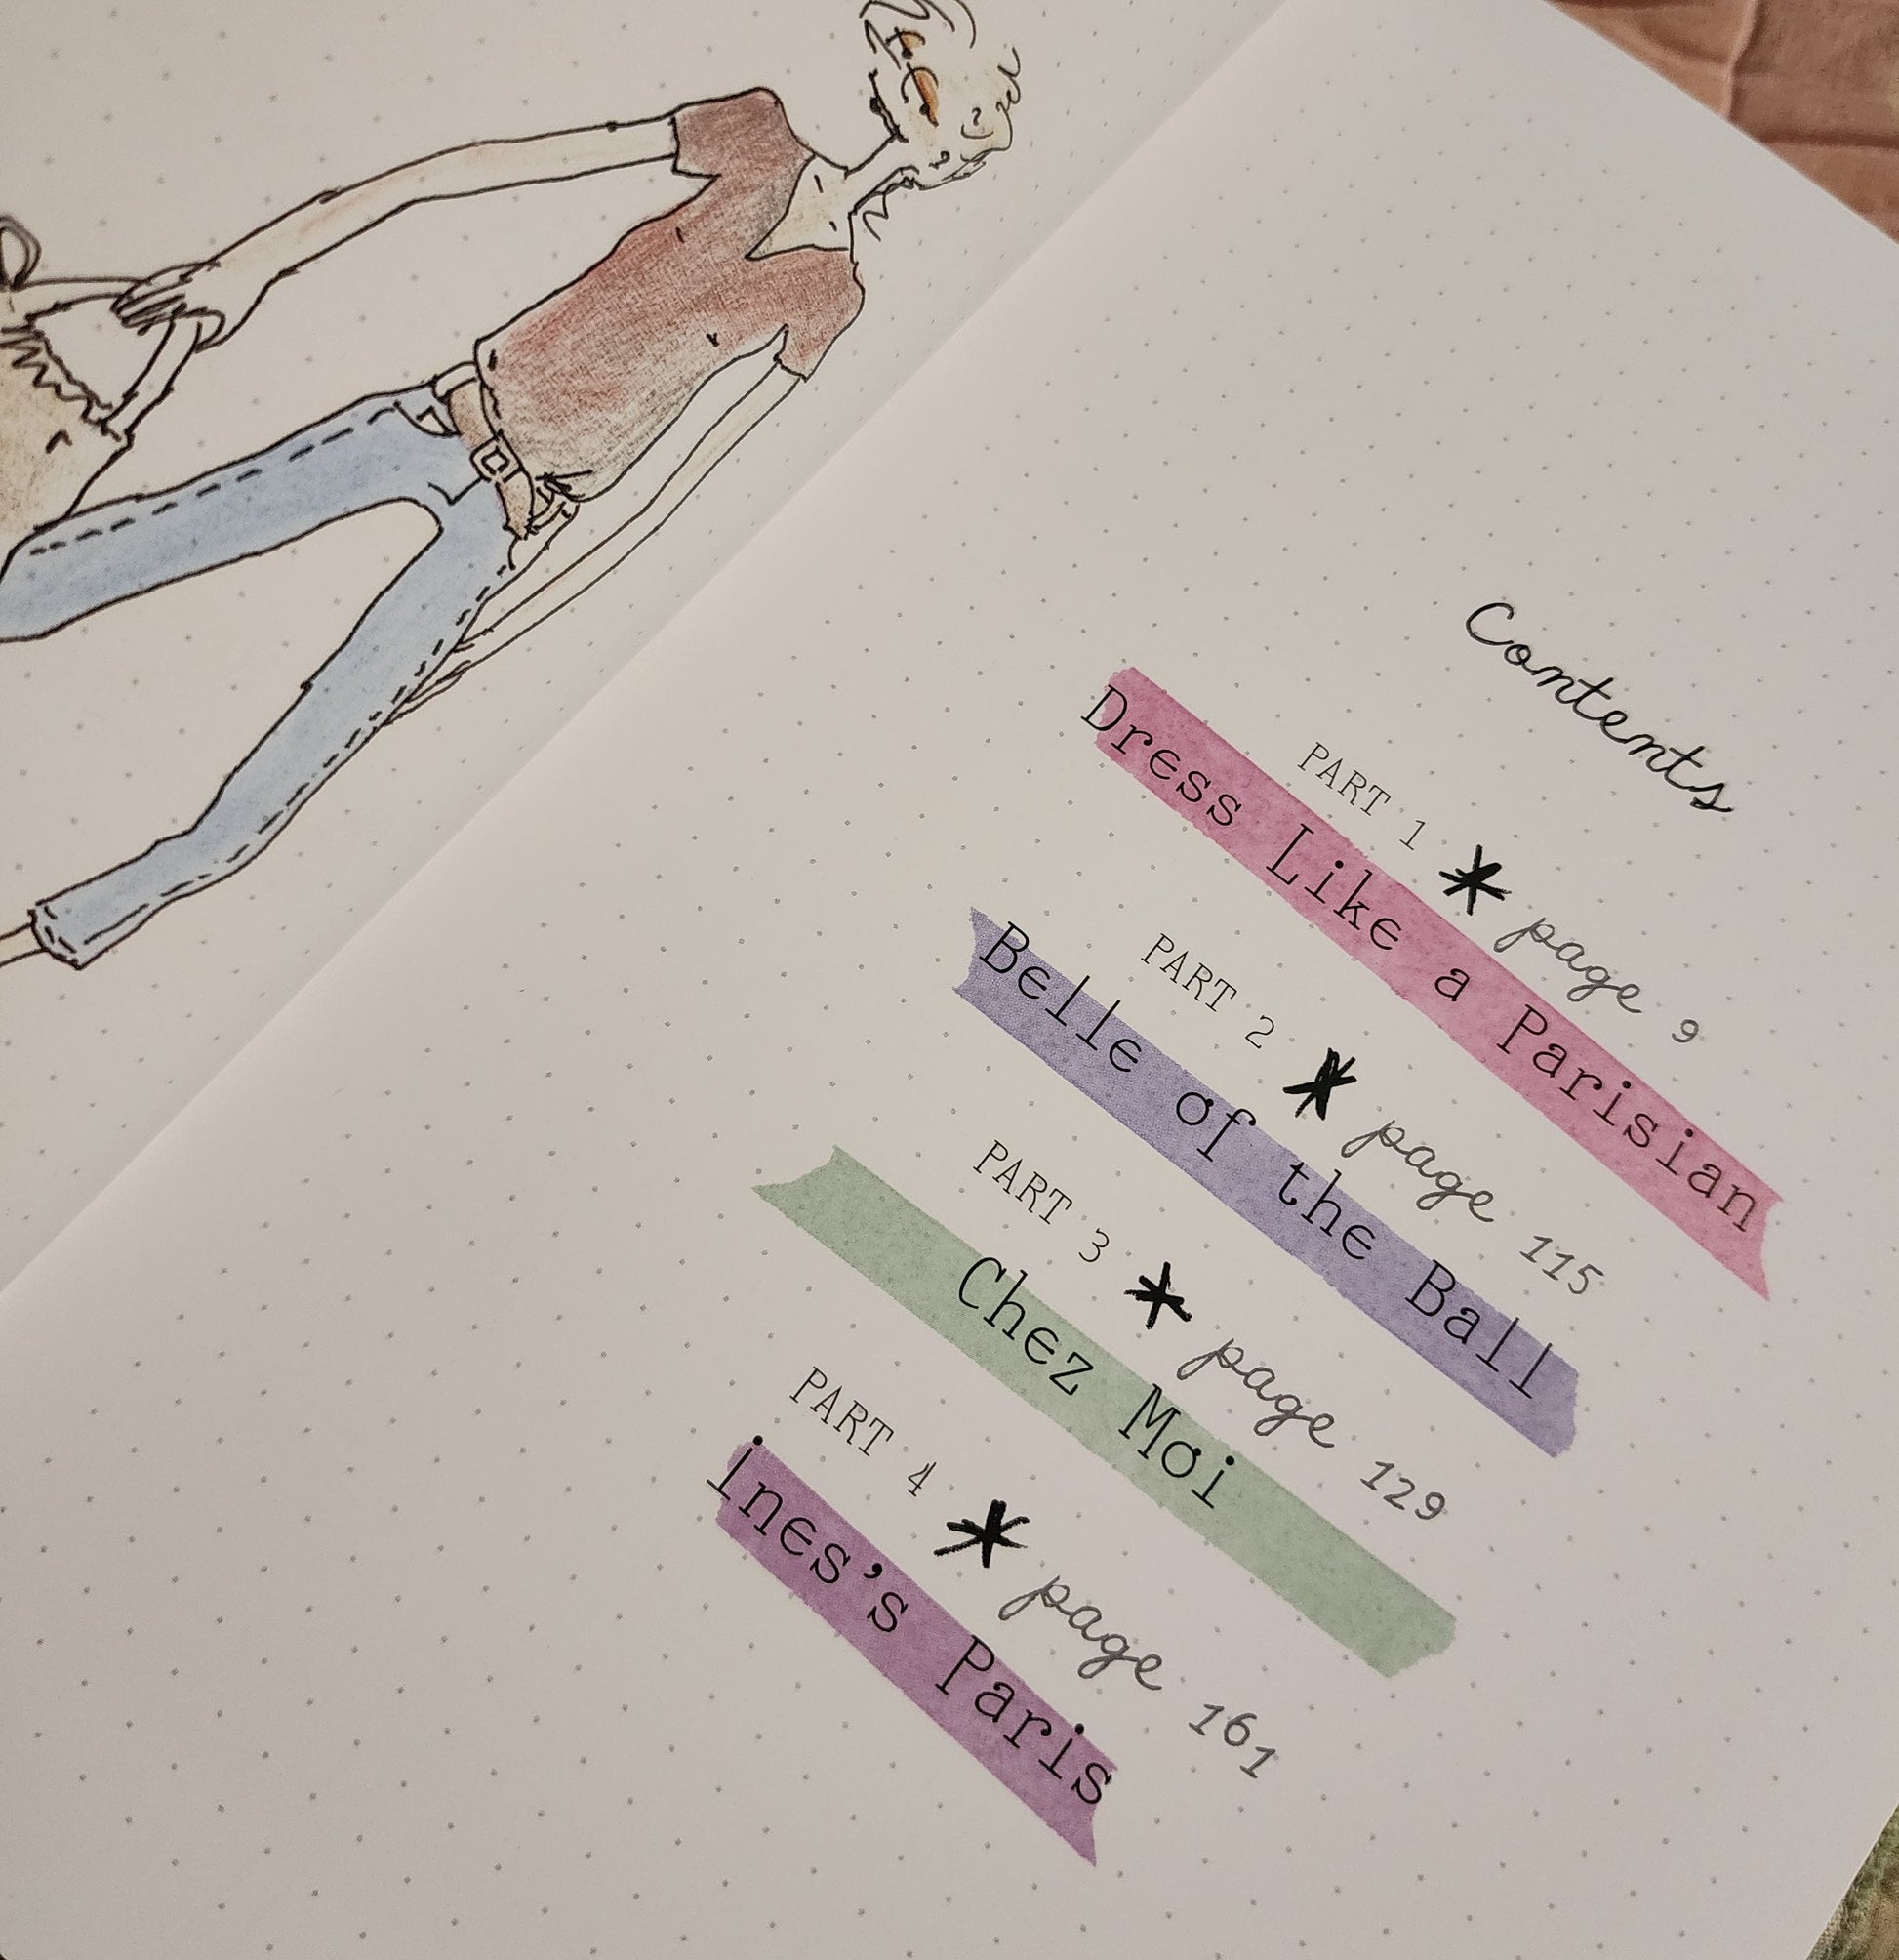 Contents
PART 1 * page 9
Dress Like a Parisian
PART 2 * page 115
Belle of the Ball
PART 3 * page 129
Chez Moi
PART 4 * page 161
Ines's Paris